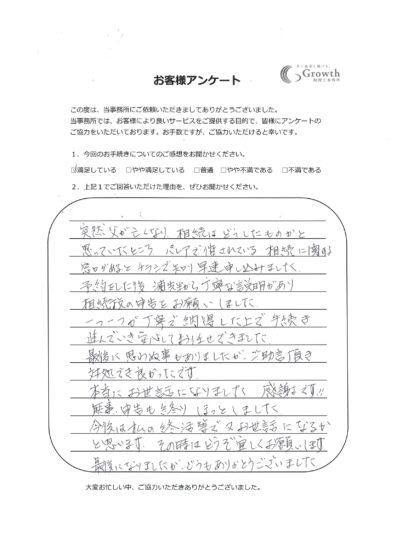 Growth
税理士事務所
お客様アンケート
この度は、当事務所にご依頼いただきましてありがとうございました。
当事務所では、お客様により良いサービスをご提供する目的で、皆様にアンケートの
ご協力をいただいております。お手数ですが、ご協力いただけると幸いです。
1．今回のお手続きについてのご感想をお聞かせください。
☑満足している □やや満足している □普通 □やや不満である □不満である
2．上記1でご回答いただけた理由を、ぜひお聞かせください。
突然父が亡くなり 相続はどうしたものかと
思っていたところ パレアで催されている 相続に関する
窓口があるとチラシで知り早速申し込みました
予約をした後 浦先生から丁寧な説明があり
相続税の申告をお願いしました
一つ一つが丁寧で納得した上で手続き
進んでいき安心してお任せできました
最後に思わぬ事もありましたが、ご助言頂き
対処でき良かったです
本当にお世話になりました 感謝です!!
無事、申告も終り ほっとしました
今後は私の終活等で又お世話になるか
と思います その時はどうぞ宜しくお願いします
最後になりましたが、どうもありがとうございました
大変お忙しい中、ご協力いただきありがとうございました。